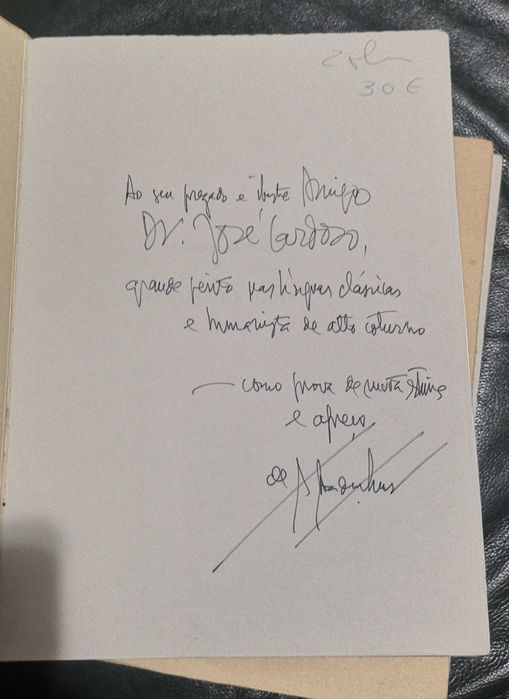 30 €
Ao seu prezado e ilustre Amigo
Dr. José Cardoso,
grande perito nas línguas clássicas
e humanista de alto coturno
— como prova de muita estima
e apreço
de